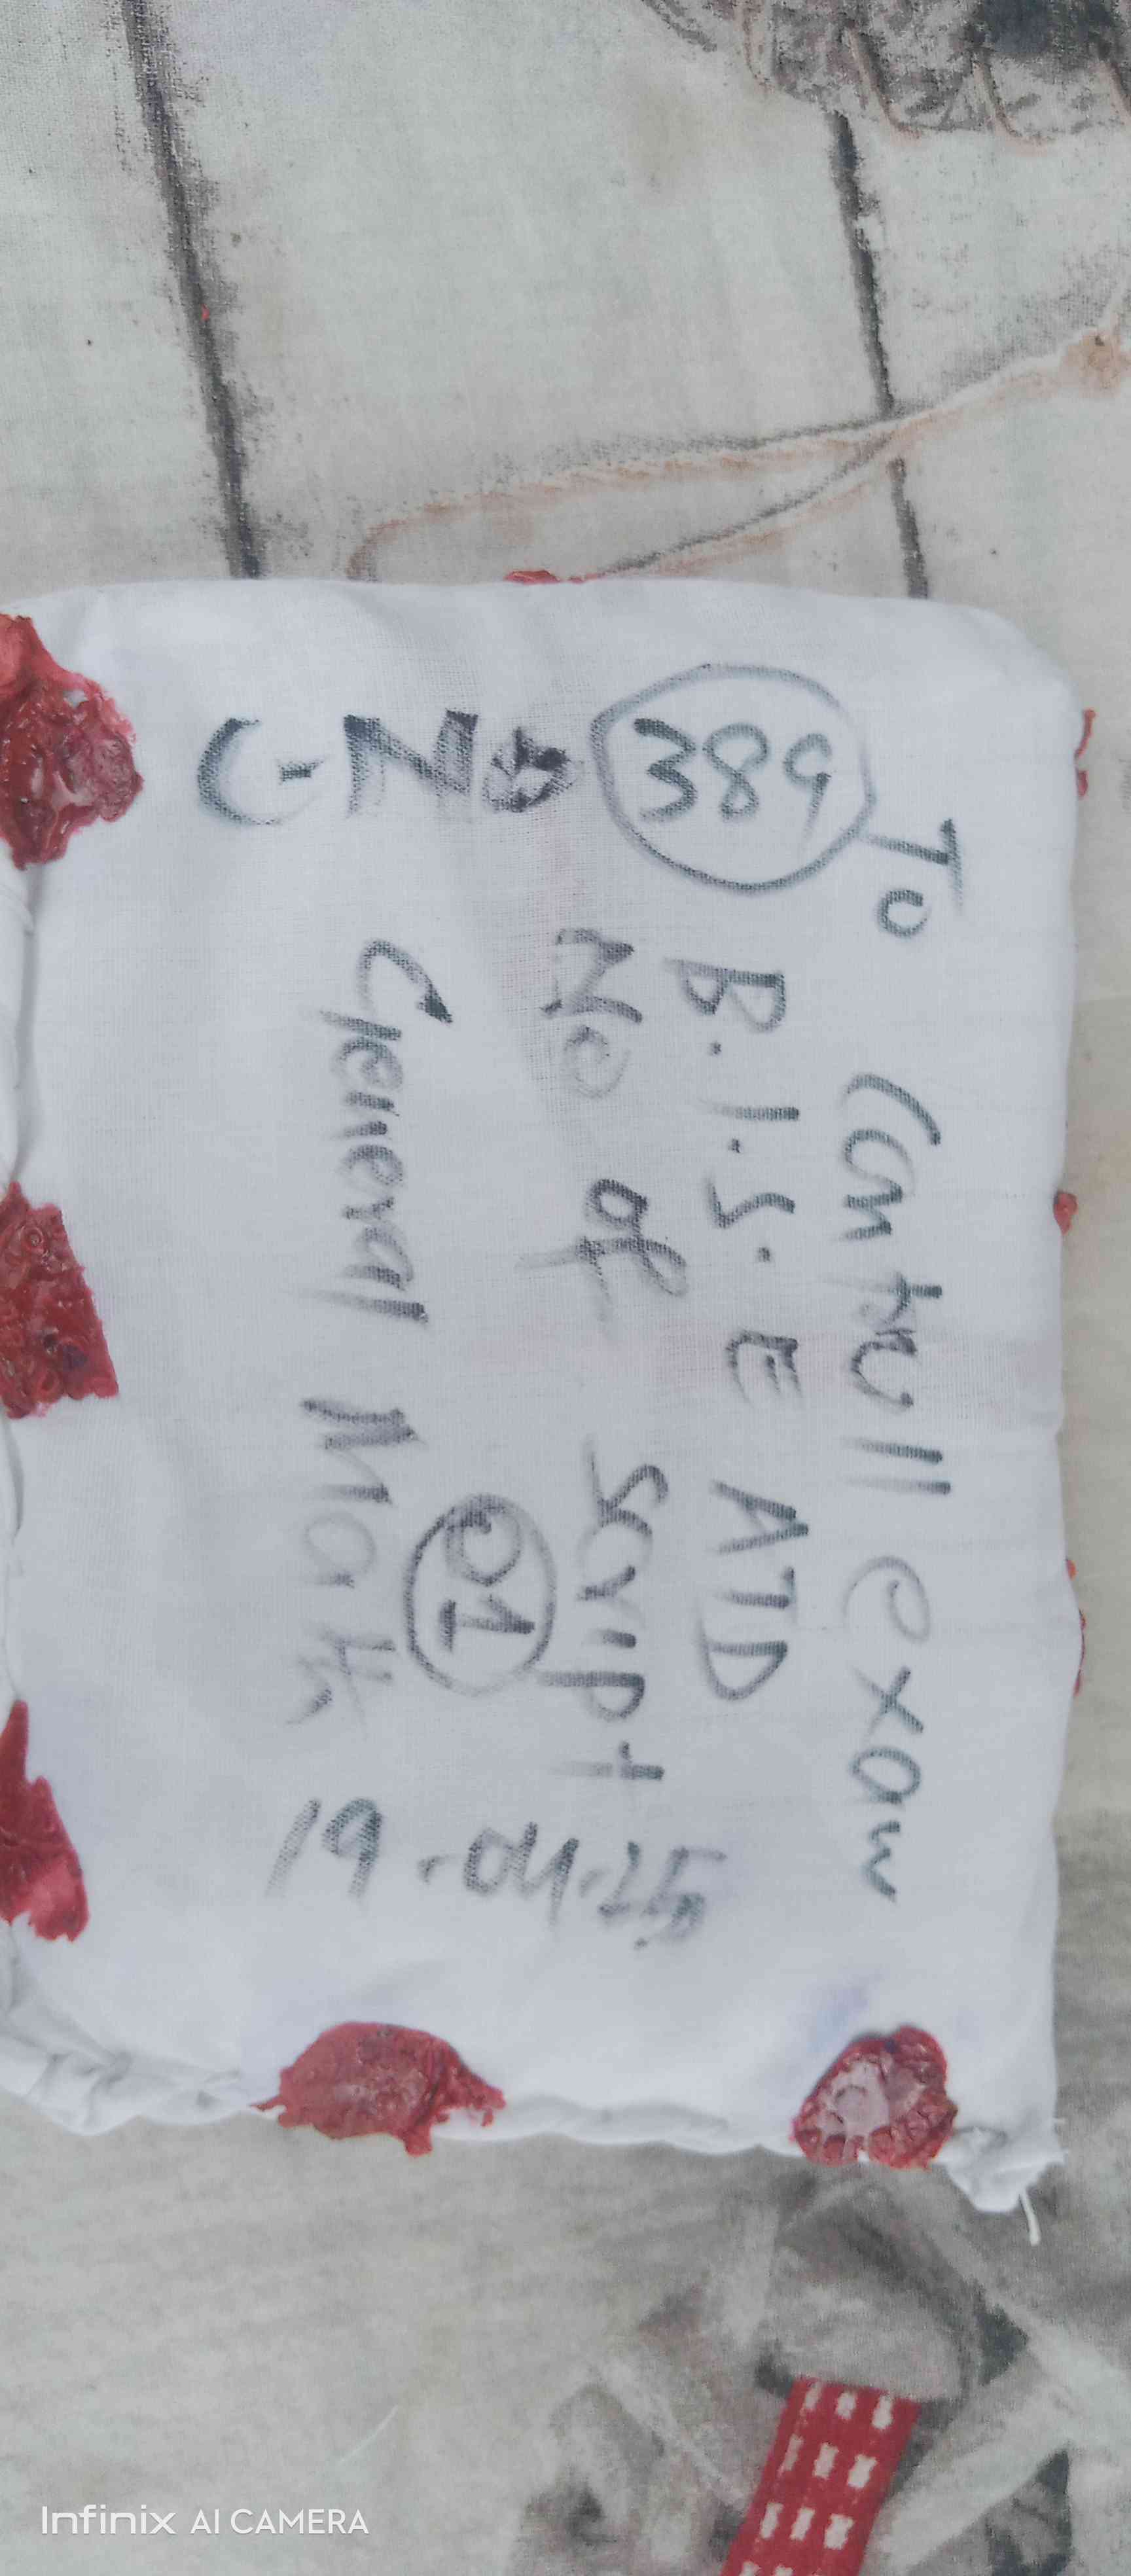 To Controll exam
B.I.S.E ATD
C-No 389
No of script
01
General Math
19-04-25
Infinix AI CAMERA